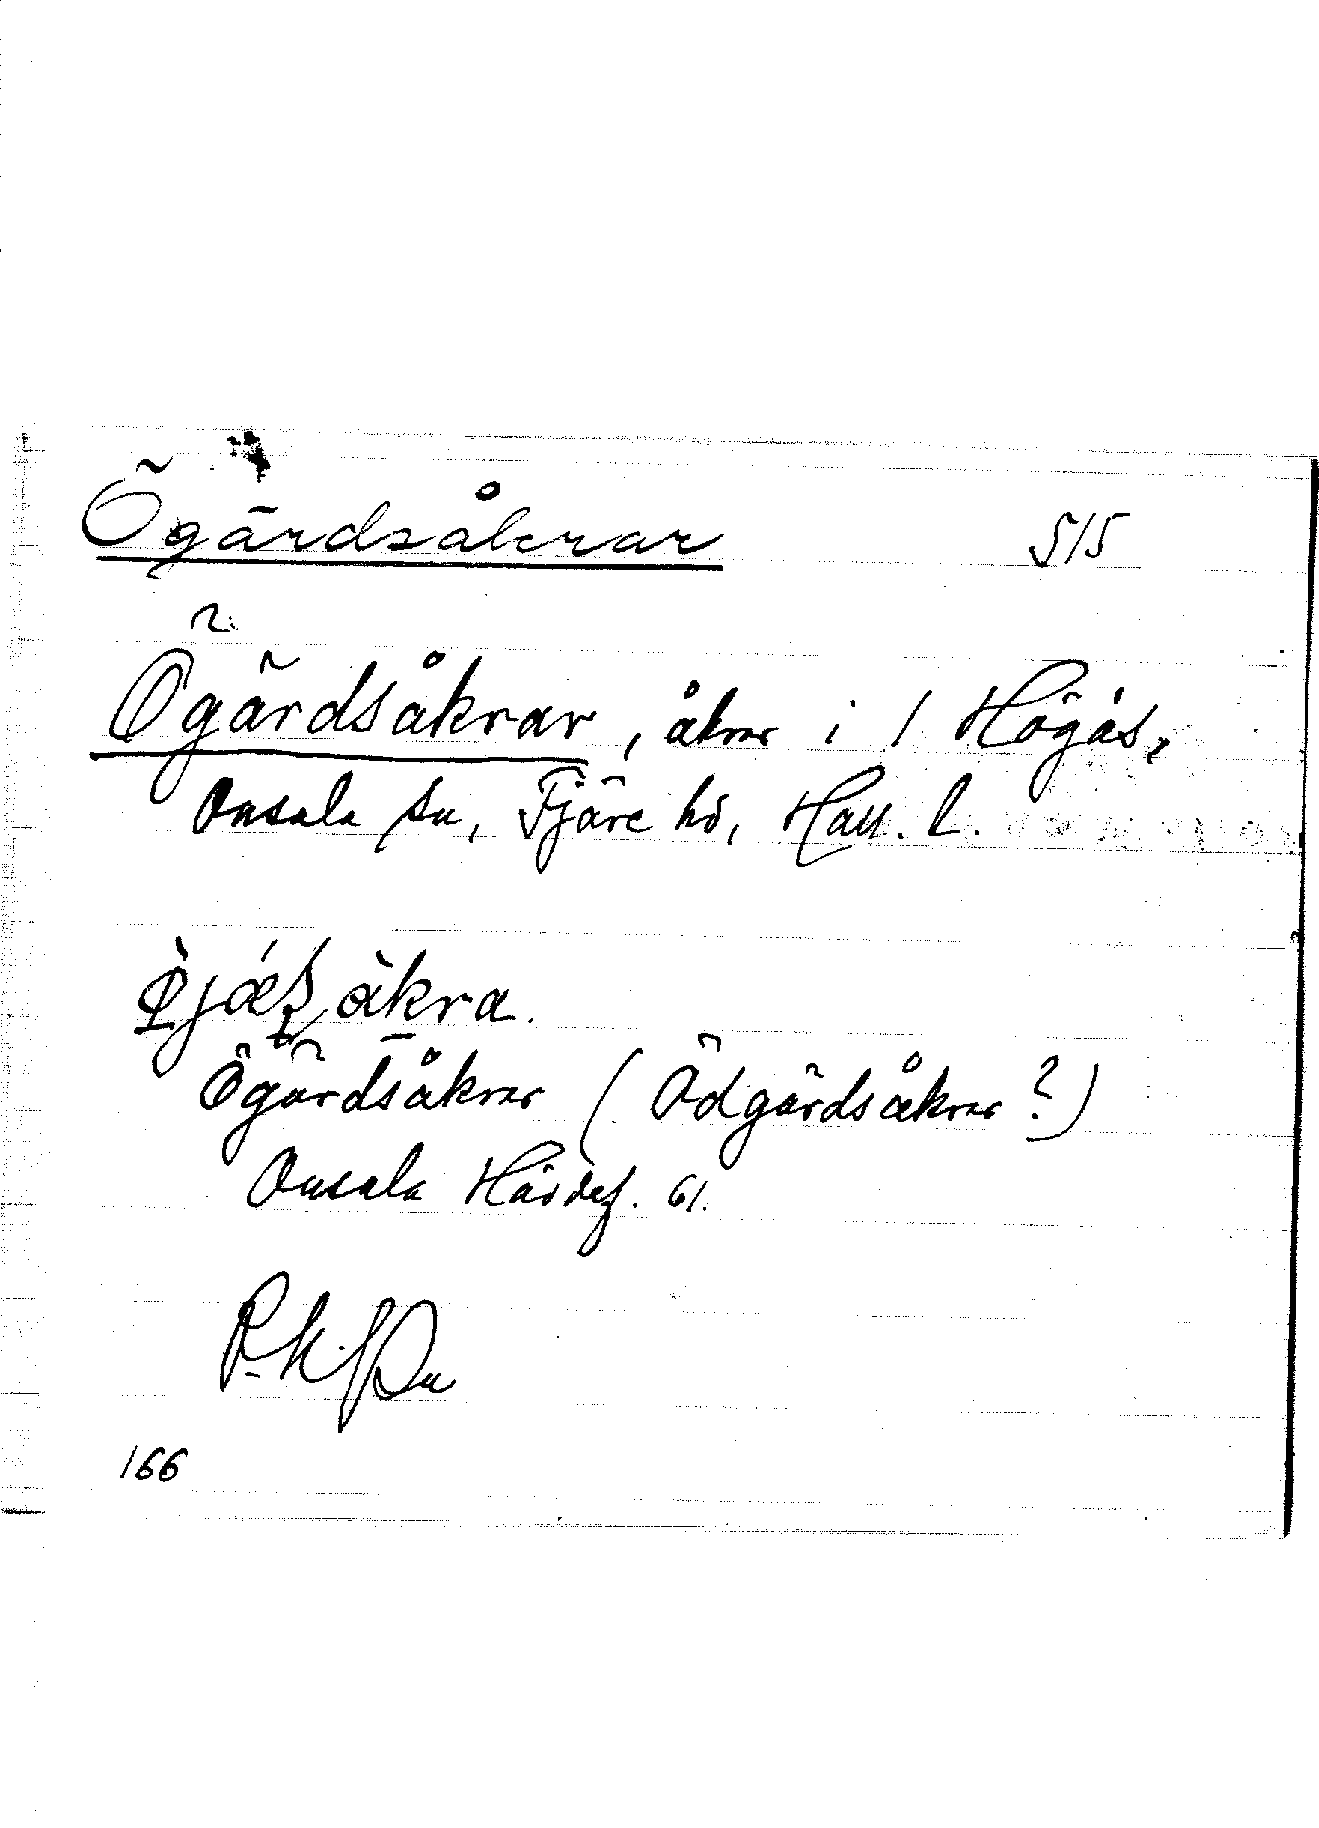 Ögärdsåkrar 515
Ögärdsåkrar, åkrar i 1 Högås,
Onsala sn, Fjäre hd, Hall. l.
Ögärdsåkrar (Ödgärdsåkrar?)
Onsala 61.
166